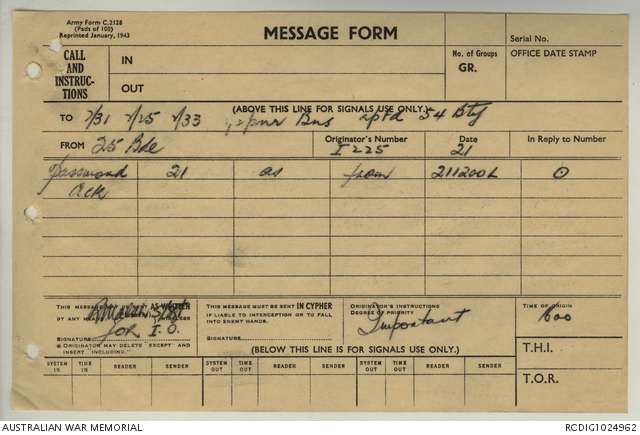 Army Form C.2128
(Pads of 100)
Reprinted January, 1943
MESSAGE FORM
Serial No.
CALL AND INSTRUC-TIONS
IN
OUT
No. of Groups
GR.
OFFICE DATE STAMP
(ABOVE THIS LINE FOR SIGNALS USE ONLY.)
TO 2/31 2/25 2/33 Bns rptd 54 Bty
FROM 25 Bde
Originator's Number
I 225
Date
21
In Reply to Number
Password 21 as from 211200L O
Ack
THIS MESSAGE AS WRITTEN
BY ANY
for I.O.
SIGNATURE
ORIGINATOR MAY DELETE "EXCEPT" AND
INSERT "INCLUDING."
THIS MESSAGE MUST BE SENT IN CYPHER
IF LIABLE TO INTERCEPTION OR TO FALL
INTO ENEMY HANDS.
SIGNATURE
ORIGINATOR'S INSTRUCTIONS
DEGREE OF PRIORITY
Important
TIME OF ORIGIN
1600
(BELOW THIS LINE IS FOR SIGNALS USE ONLY.)
T.H.I.
T.O.R.
SYSTEM IN TIME IN READER SENDER SYSTEM OUT TIME OUT READER SENDER SYSTEM OUT TIME OUT READER SENDER
AUSTRALIAN WAR MEMORIAL
RCDIG1024962